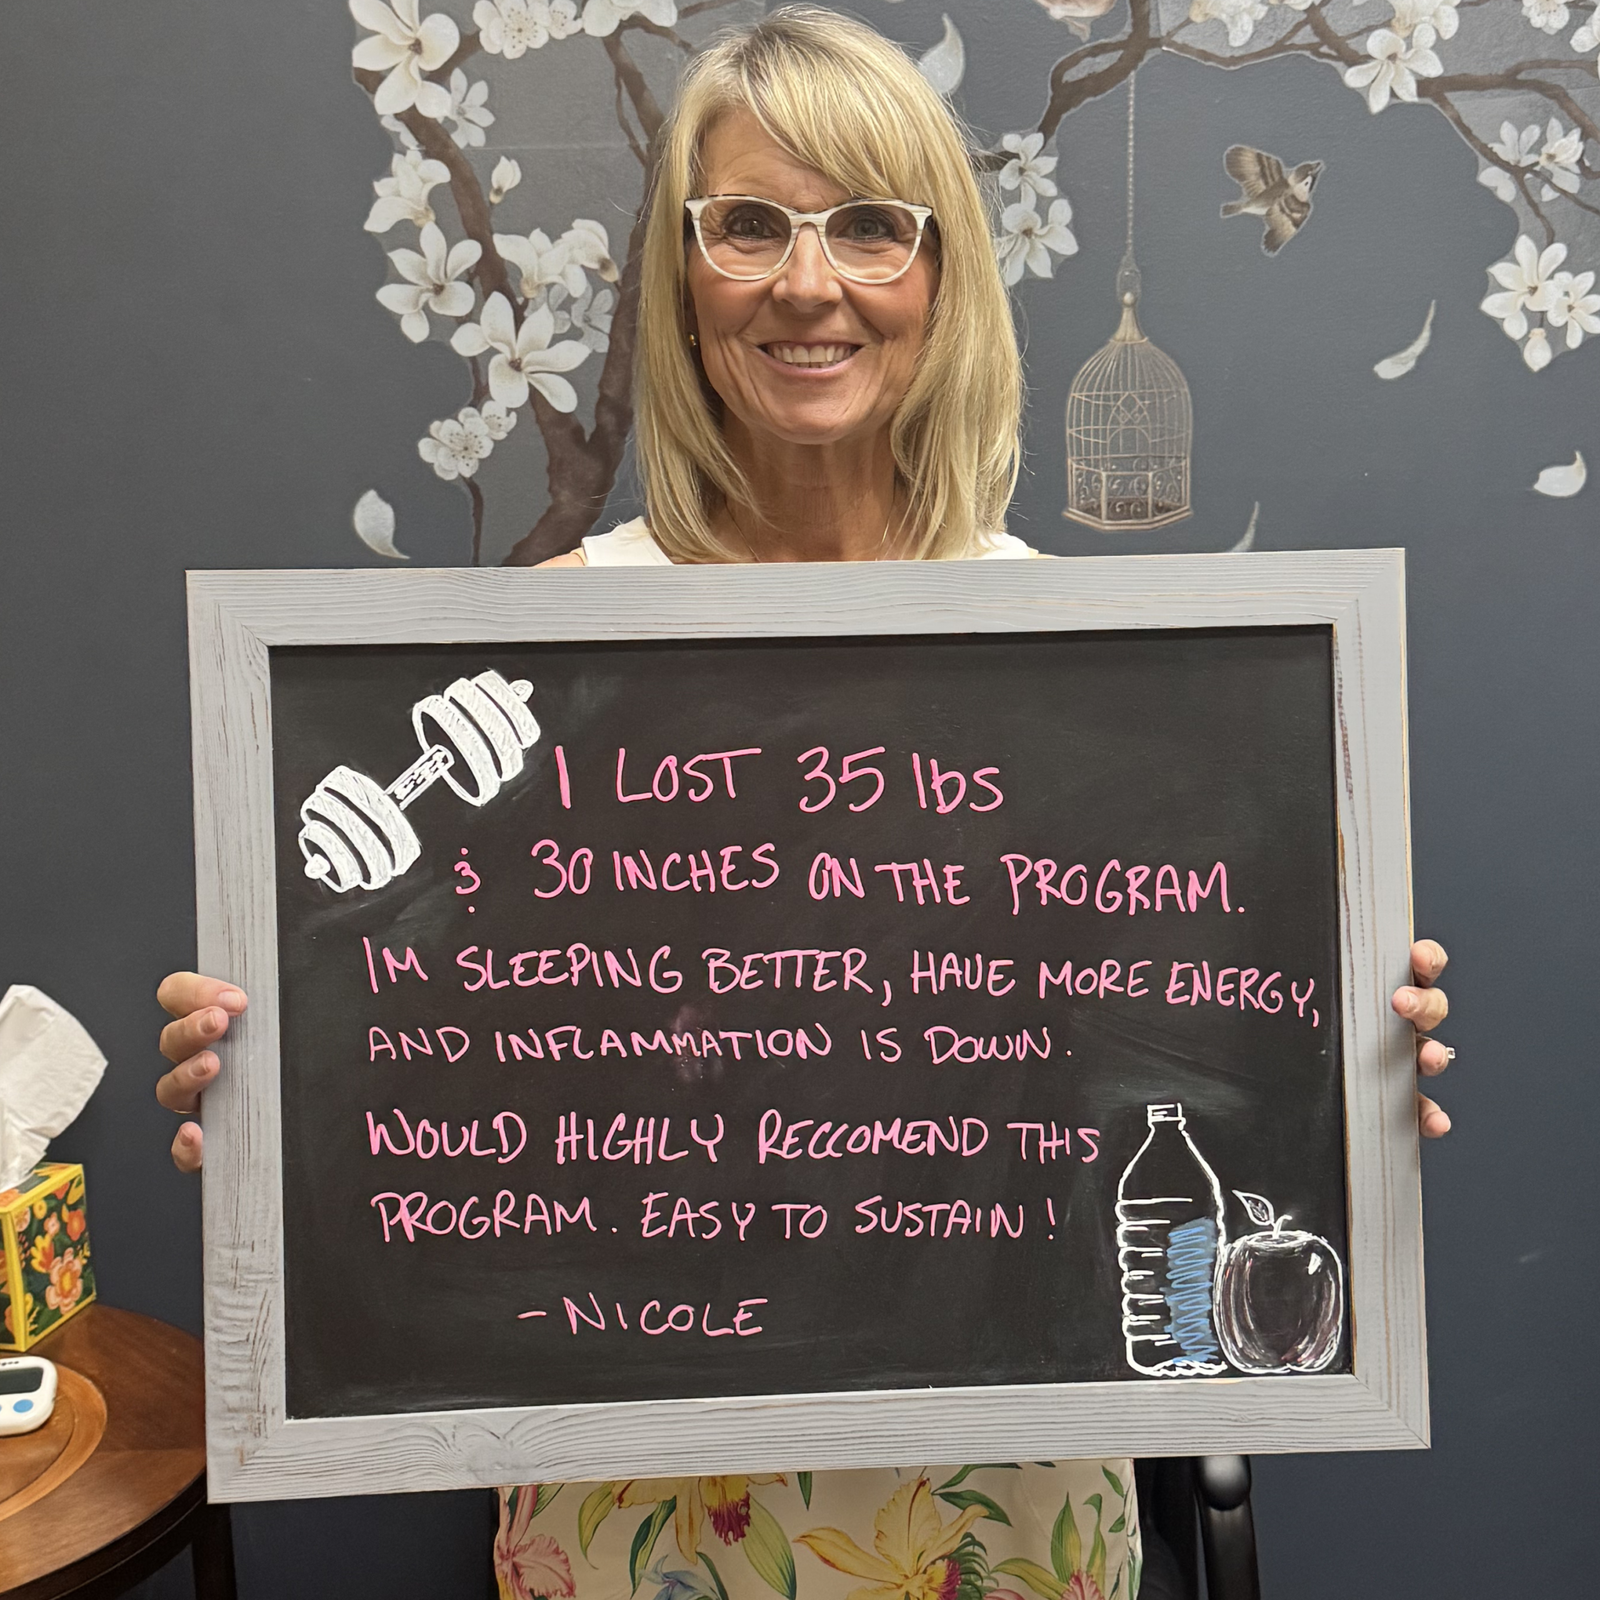 I LOST 35 lbs
& 30 INCHES ON THE PROGRAM.
IM SLEEPING BETTER, HAVE MORE ENERGY,
AND INFLAMMATION IS DOWN.
WOULD HIGHLY RECCOMEND THIS
PROGRAM. EASY TO SUSTAIN!
- NICOLE